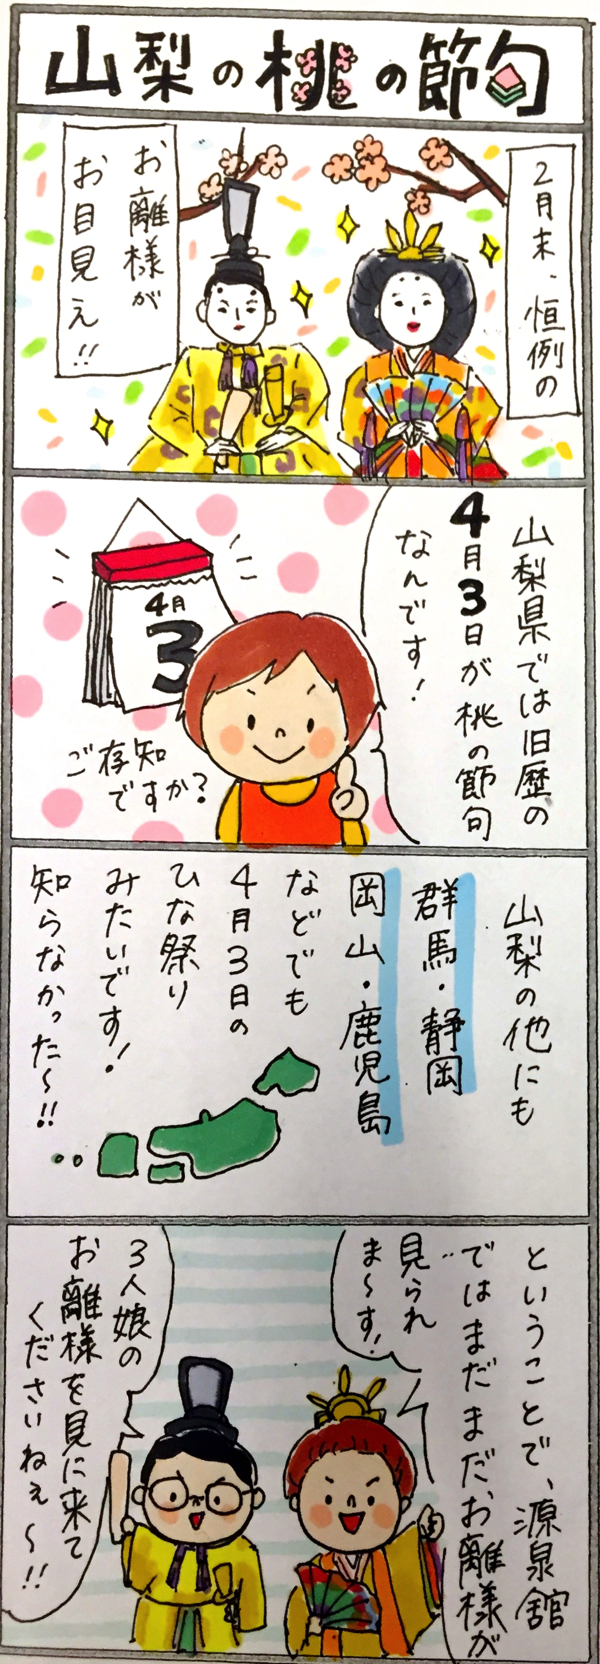 山梨の桃の節句
2月末、恒例の
お離様が
お目見え!!
山梨県では旧歴の
4月3日が桃の節句
なんです!
4月
3
ご存知
ですか?
山梨の他にも
群馬・静岡
岡山・鹿児島
などでも
4月3日の
ひな祭り
みたいです!
知らなかった〜!!
ということで、源泉舘
ではまだまだ、お離様が
見られ
ま〜す!
3人娘の
お離様を見に来て
くださいねぇ〜!!